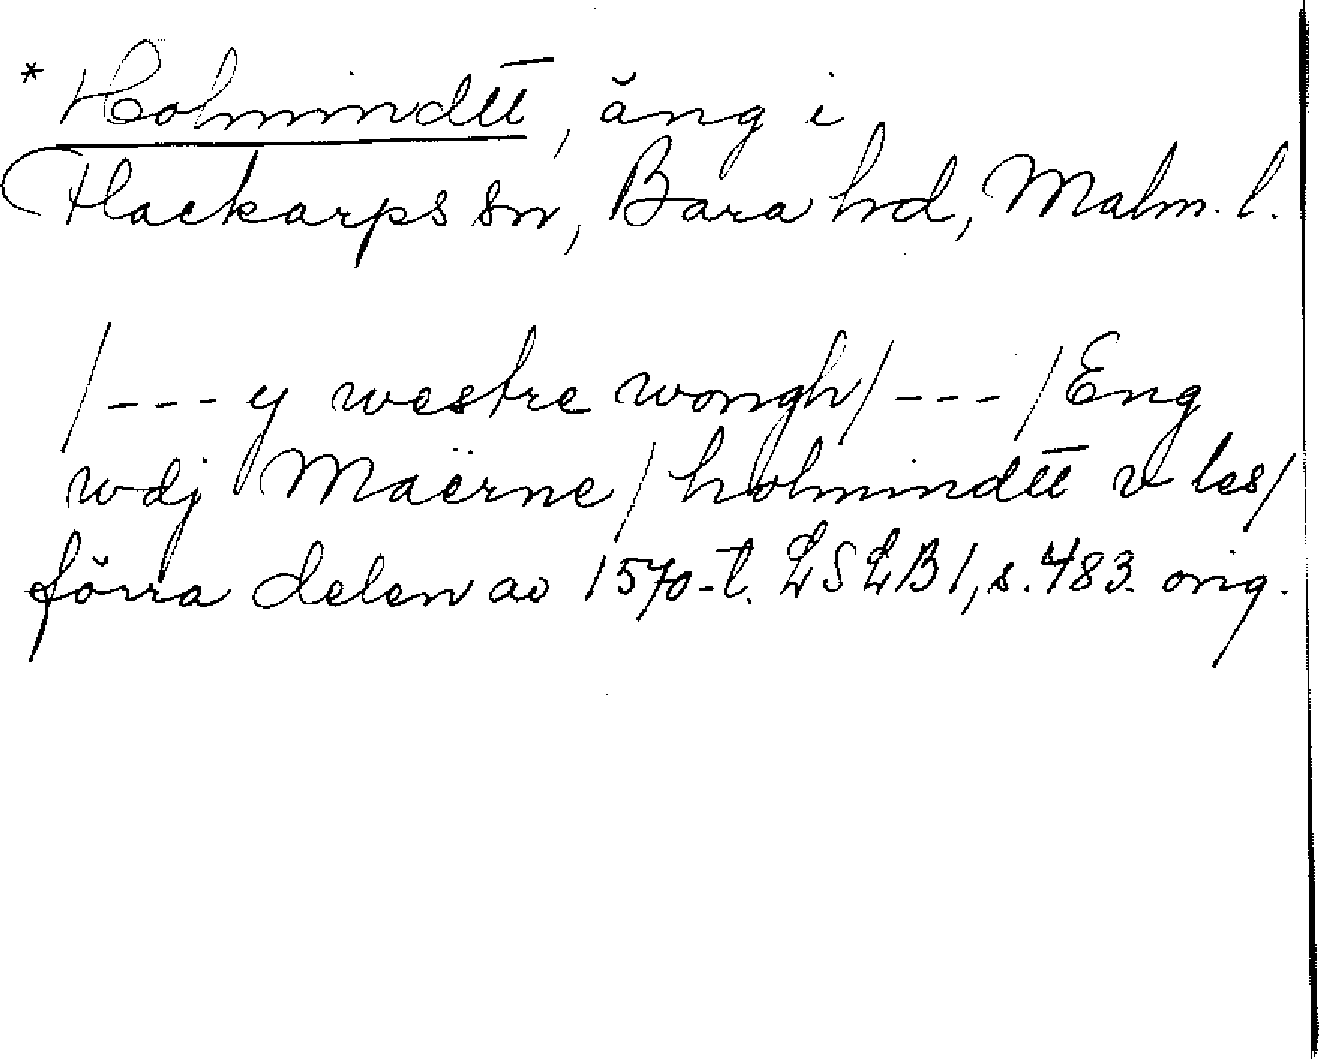 * Holmindtt, äng i
Flackarps sn, Bara hd, Malm. l.
/--- y westre wongh/ --- / Eng
wdj Maërne / holmindtt v les/
förra delen av 1570-t. LSLB 1, s. 483. orig.